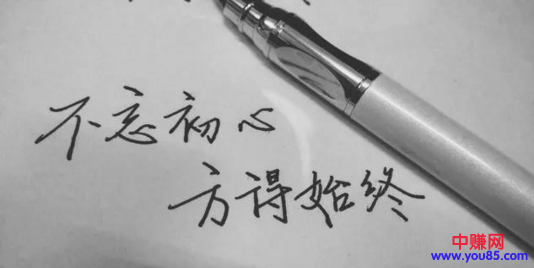 不忘初心
方得始终
中赚网
www.you85.com